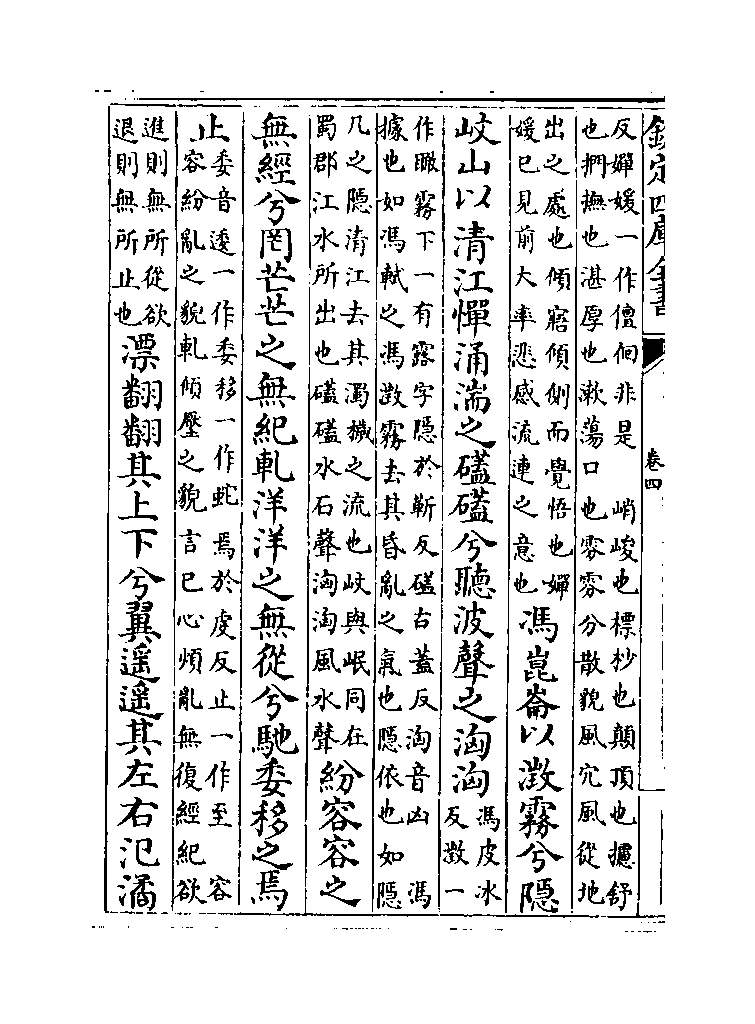 欽定四庫全書
卷四
反嬋媛一作儃佪非是　峭峻也標杪也顛頂也攄舒
也捫撫也湛厚也漱蕩口　也雰雰分散貌風穴風從地
出之處也傾寤傾側而覺悟也嬋
媛已見前大率悲感流連之意也
馮崑崙以澂霧兮隱
岐山以清江憚涌湍之礚礚兮聽波聲之洶洶
馮皮冰
反澂一
作瞰霧下一有露字隱於靳反礚古蓋反洶音凶　馮
據也如馮軾之馮澂霧去其昏亂之氣也隱依也如隱
几之隱清江去其濁穢之流也岐與岷同在
蜀郡江水所出也礚礚水石聲洶洶風水聲
紛容容之
無經兮罔芒芒之無紀軋洋洋之無從兮馳委移之焉
止
委音逶一作委移一作蛇　焉於虔反止一作至　容
容紛亂之貌軋傾壓之貌言已心煩亂無復經紀欲
進則無所從欲
退則無所止也
漂翻翻其上下兮翼遥遥其左右氾潏